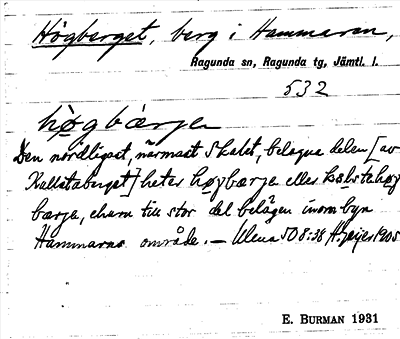 Högberget, berg i Hammaren,
Ragunda sn, Ragunda tg, Jämtl. l.
532
høgbærje
Den nordligast, närmast Skalet, belägna delen [av
Kallstaberget] heter høgbærje eller kalstehøg
bærje, ehuru till stor del belägen inom byn
Hammarns område. — Ulma 508:38 A. Geijer 1905
E. BURMAN 1931